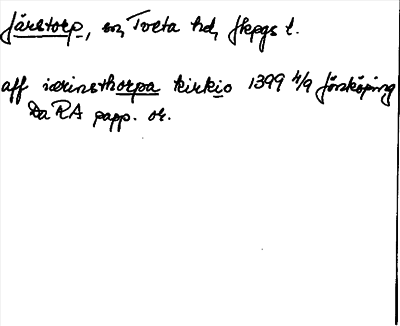 Järstorp, sn, Tveta hd, Jkpgs l.
aff iærinsthorpa kirkio 1399 4/9 Jönköping
Da RA papp. or.